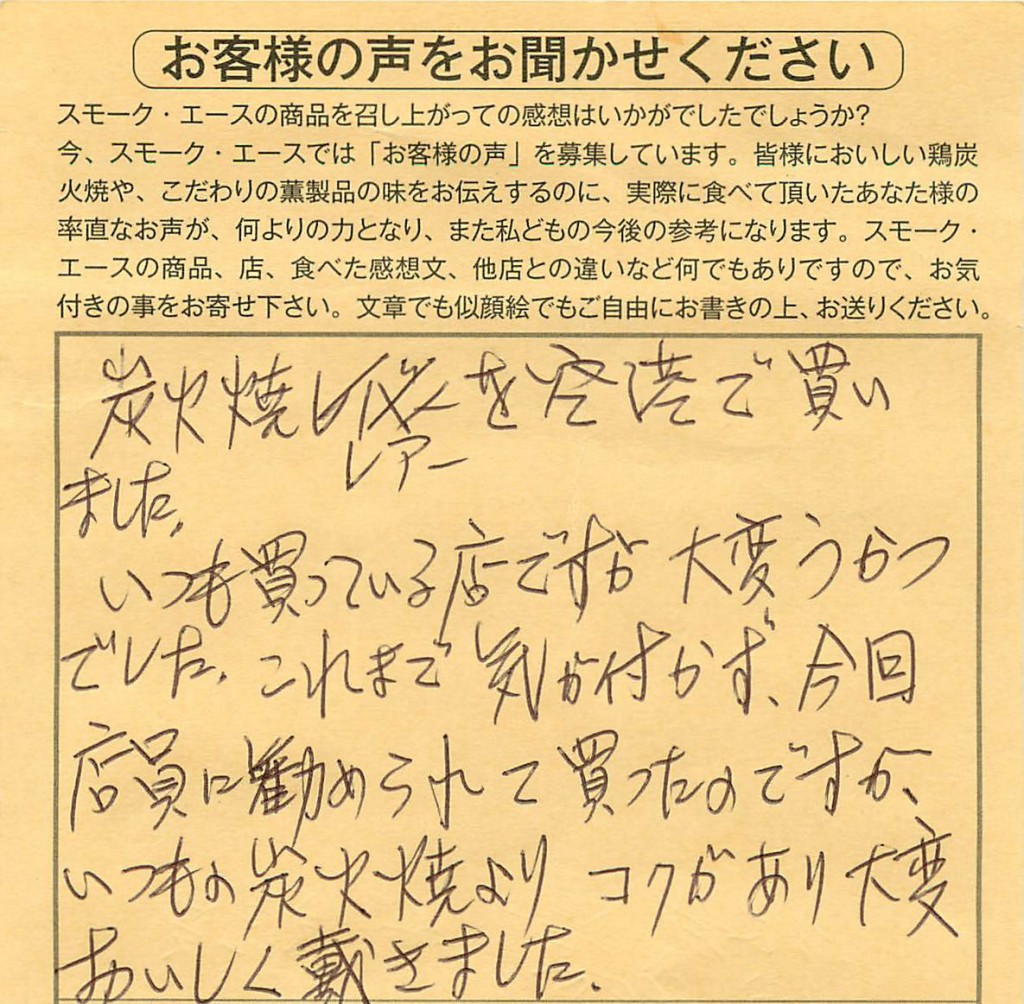 お客様の声をお聞かせください
スモーク・エースの商品を召し上がっての感想はいかがでしたでしょうか?
今、スモーク・エースでは「お客様の声」を募集しています。皆様においしい鶏炭
火焼や、こだわりの薫製品の味をお伝えするのに、実際に食べて頂いたあなた様の
率直なお声が、何よりの力となり、また私どもの今後の参考になります。スモーク・
エースの商品、店、食べた感想文、他店との違いなど何でもありですので、お気
付きの事をお寄せ下さい。文章でも似顔絵でもご自由にお書きの上、お送りください。
炭火焼レイヤーを空港で買い
レアー
ました。
いつも買っている店ですが大変うかつ
でした。これまで気が付かず、今回
店員に勧められて買ったのですが、
いつもの炭火焼より コクがあり大変
おいしく戴きました。